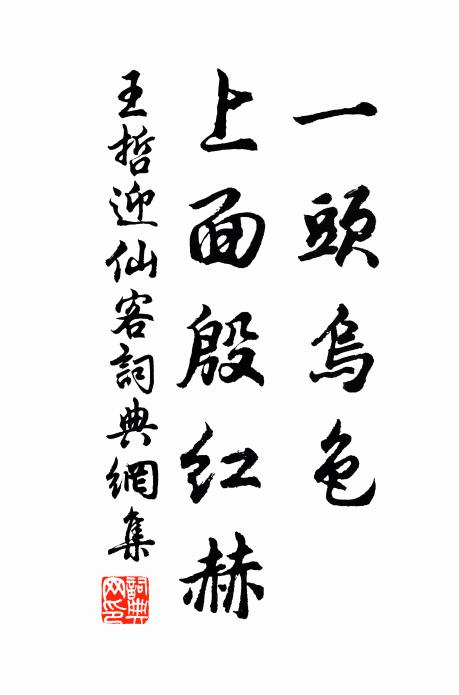 一頭烏色
上面殷红赫
王哲迎仙客詞典網集
詞典网印